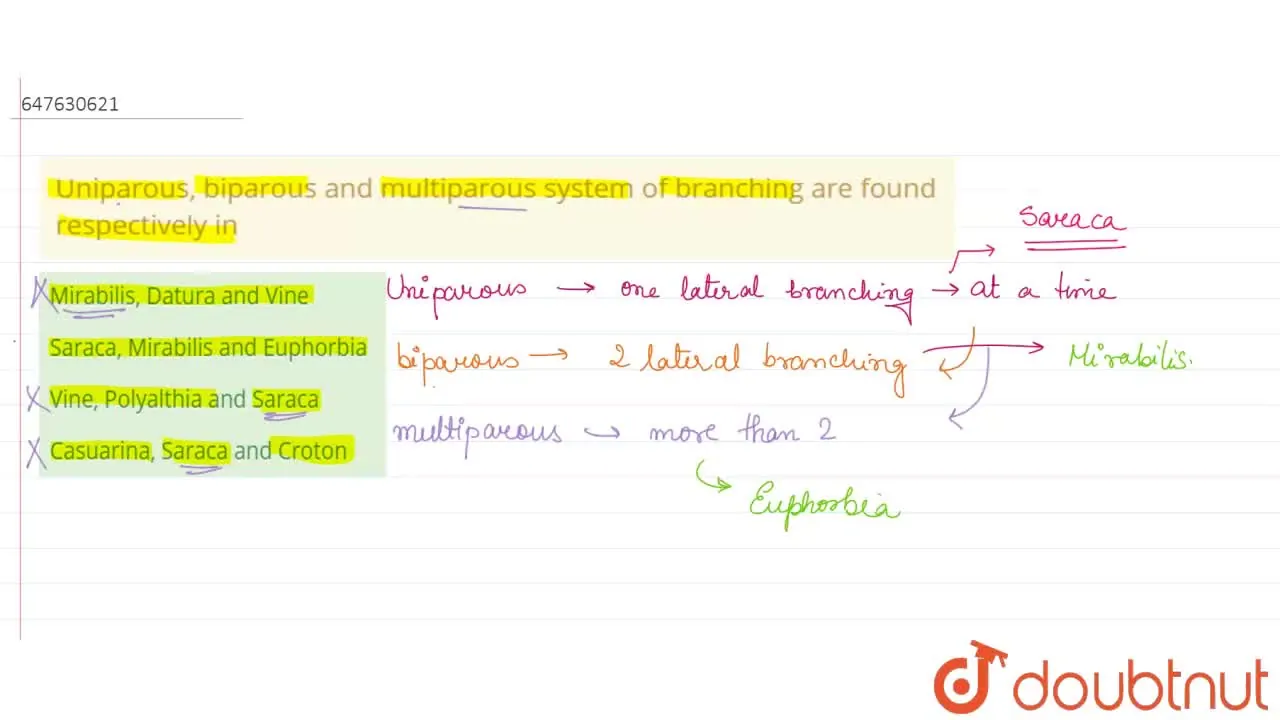 647630621
Uniparous, biparous and multiparous system of branching are found
respectively in
Saraca
Mirabilis, Datura and Vine
Uniparous → one lateral branching → at a time
Saraca, Mirabilis and Euphorbia
biparous → 2 lateral branching → Mirabilis.
Vine, Polyalthia and Saraca
multiparous → more than 2
Casuarina, Saraca and Croton
Euphorbia
doubtnut